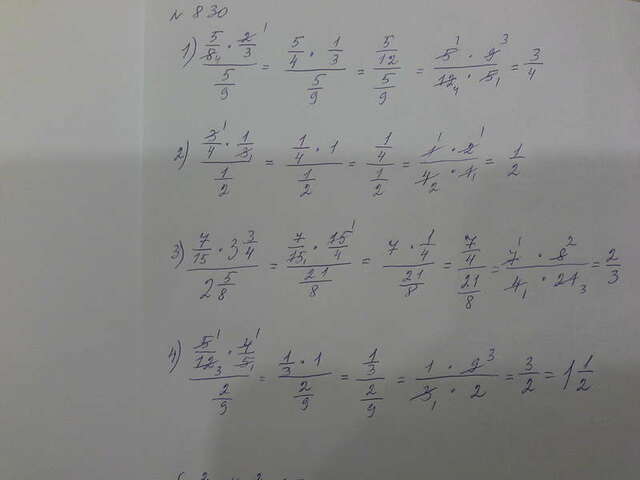 № 830
1) (5/8₄ · 2¹/3) / (5/9) = (5/4 · 1/3) / (5/9) = (5/12) / (5/9) = (5¹ · 9³) / (12₄ · 5₁) = 3/4
2) (3¹/4 · 1/3₁) / (1/2) = (1/4 · 1) / (1/2) = (1/4) / (1/2) = (1¹ · 2¹) / (4₂ · 1₁) = 1/2
3) (7/15 · 3 3/4) / (2 5/8) = (7/15₁ · 15¹/4) / (21/8) = (7 · 1/4) / (21/8) = (7/4) / (21/8) = (7¹ · 8²) / (4₁ · 21₃) = 2/3
4) (5¹/12₃ · 4¹/5₁) / (2/9) = (1/3 · 1) / (2/9) = (1/3) / (2/9) = (1 · 9³) / (3₁ · 2) = 3/2 = 1 1/2